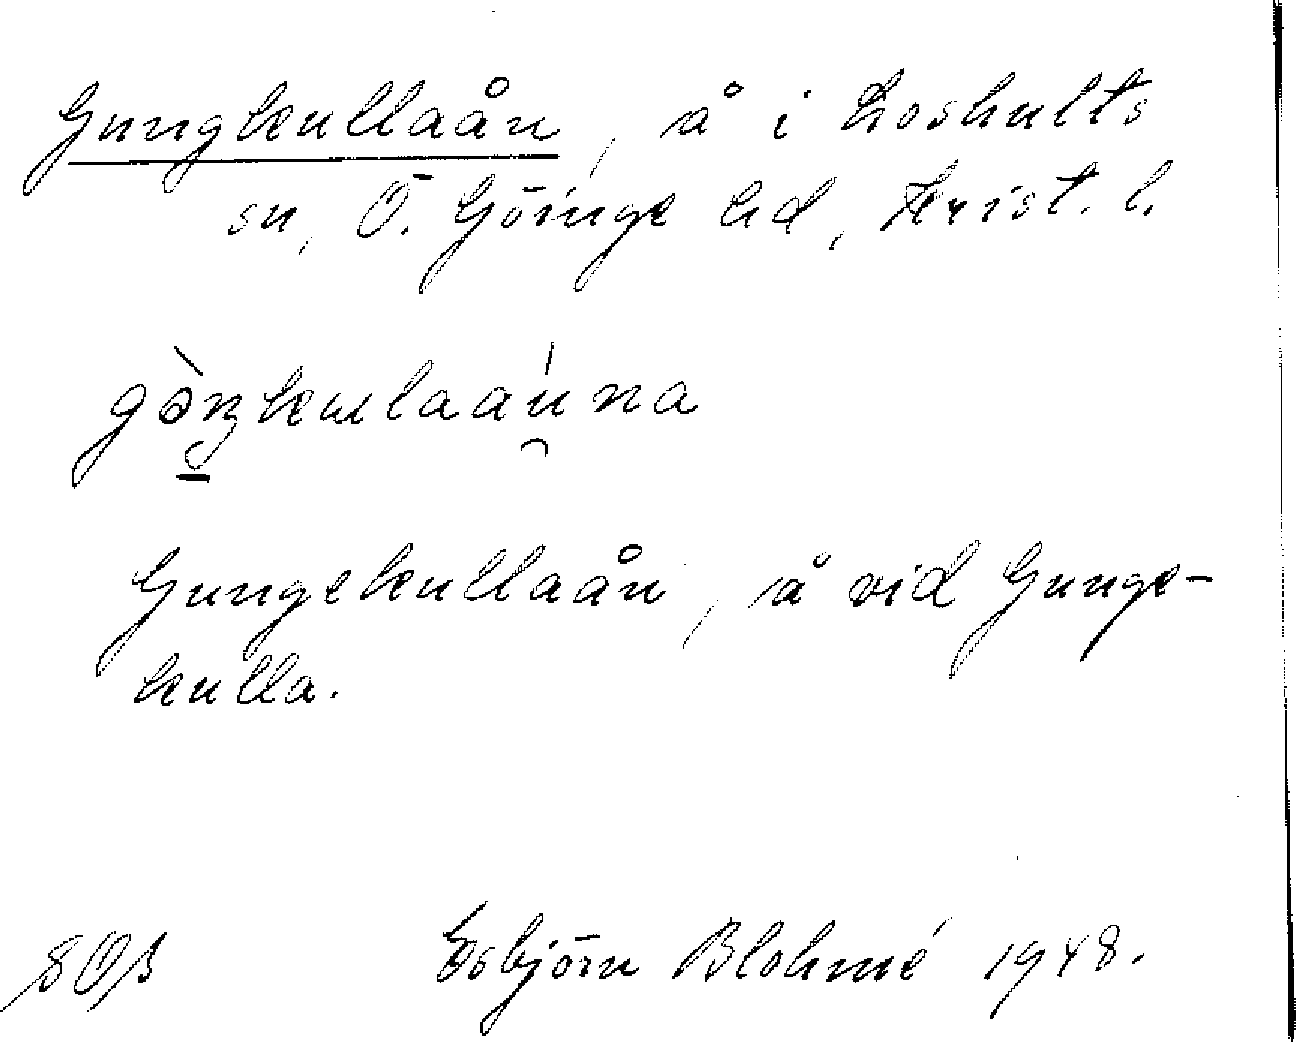 Gungkullaån, å i Loshults
sn, Ö. Göinge hd, Krist. l.
Gungekullaån, å vid Gunge-
kulla.
Esbjörn Blohmé 1948.